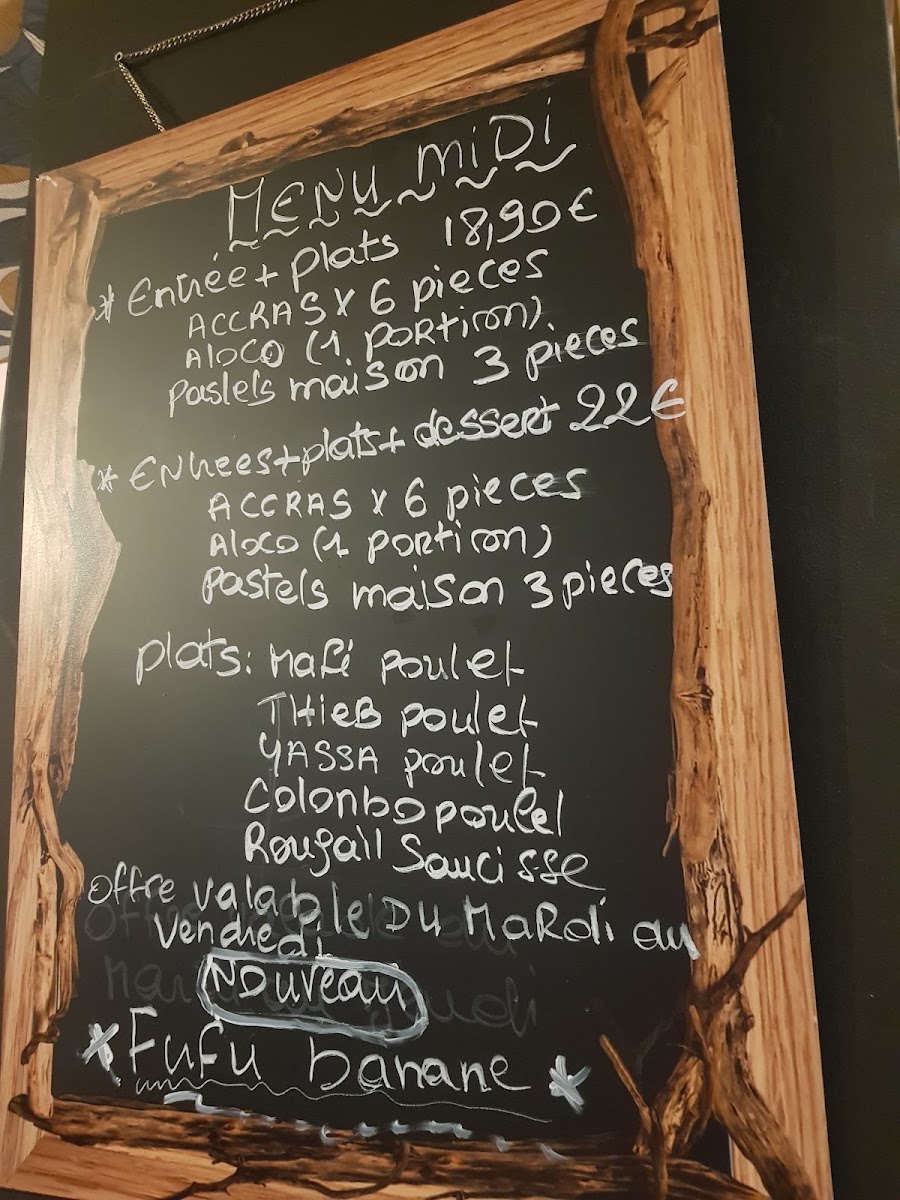 MENU MIDI
* Entrée + plats 18,90€
ACCRAS x 6 pieces
ALOCO (1 PORTION).
Pastels maison 3 pieces
* ENtrees + plats + dessert 22€
ACCRAS x 6 pieces
ALOCO (1 PORTION)
Pastels maison 3 pieces
plats: Mafé Poulet
THIEB poulet
YASSA poulet
Colombo poulet
Rougail Saucisse
Offre valable DU MaRdi au
Vendredi
NOUVEAU
* Fufu banane *